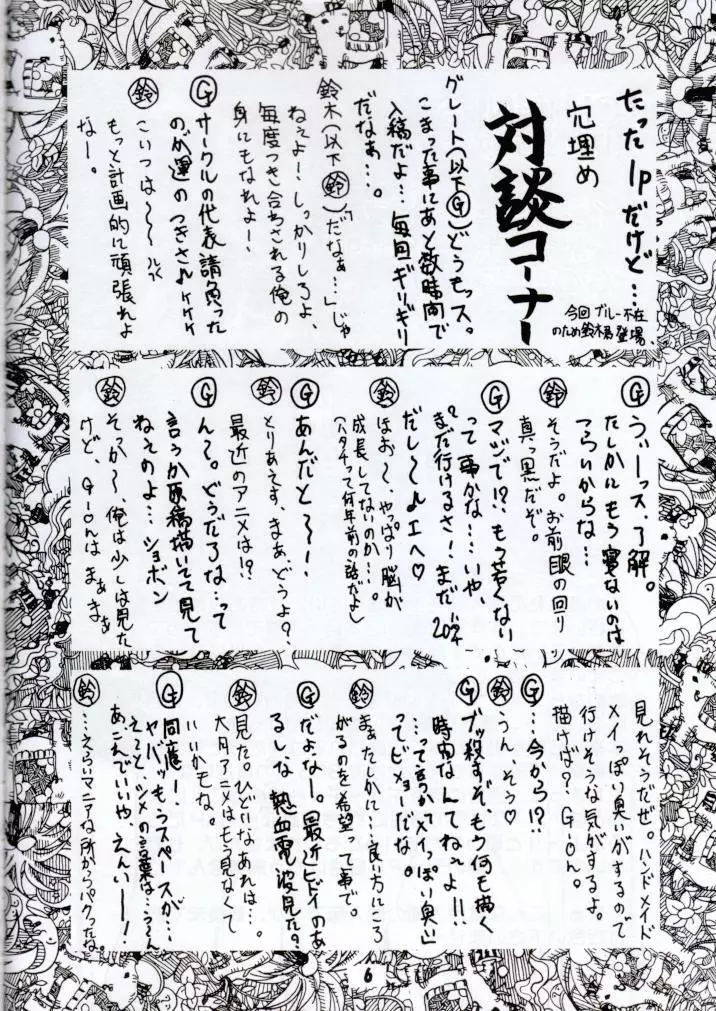 たった1pだけど…
穴埋め
対談コーナー
今回ブルー不在
のため鈴木君登場。
グレート(以下Ⓖ)どうもッス。
こまった事にあと数時間で
入稿だよ…毎回ギリギリ
だなぁ…。
鈴木(以下㊐鈴)「だなぁ…」じゃ
ねぇよ!しっかりしろよ、
毎度つき合わされる俺の
身にもなれよー!
Ⓖ サークルの代表請負った
のが運のつきさ♪ケケケ
鈴 こいつは〜〜ルパ
もっと計画的に頑張れよ
なー。
Ⓖ うぃーッス、了解。
たしかにもう寝ないのは
つらいからな…
鈴 そうだよ。お前眼の回り
真っ黒だぞ。
Ⓖ マジで!?もう若くない
って事かな……いや、
まだ行けるさ!まだハタチ20才
だし〜♪エヘ♡
鈴 ほお〜、やっぱり脳が
成長してないのか…。
(ハタチって何年前の話だよ)
Ⓖ あんだと〜!
鈴 とりあえず、まあどうよ?
最近のアニメは!?
Ⓖ ん〜。どうだろな…って
言うか原稿描いてて見て
ねぇのよ…ショボン
鈴 そっか〜、俺は少しは見た
けど、G-onはまぁまぁ
見れそうだぜ。ハンドメイド
メイっぽり臭いがするので
行けそうな気がするよ。
描けば?G-on。
Ⓖ …今から!?
鈴 うん、そう♡
Ⓖ ブッ殺すぞもう何も描く
時間なんてねぇよ!!
…って言うか“メイっぽり臭い”
ってビミョーだな。
鈴 まぁたしかに…良い方にころ
がるのを希望って事で
Ⓖ だよなー。最近ヒドイのあ
るしな 熱血電波見た?
鈴 見た。ひどいなあれは…。
大月アニメはもう見なくて
いいかもな。
Ⓖ 同意ー、
ヤバッもうスペースが…
えーと、シメの言葉は…う〜ん
あこんでいいや、えんい――!
鈴 …えらいマニアな所からパクったね。
6